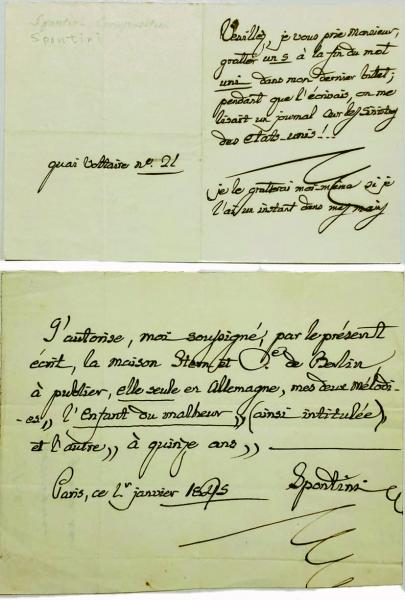 Spontini Compositeur
Spontini
Veuillez, je vous prie Monsieur,
gratter un s à la fin du mot
uni dans mon dernier billet;
pendant que l'écrivais, on me
lisait un journal sur les
des Etats-unis!..
quai Voltaire nº. 21
je le gratterai moi-même si je
l'ai un instant dans mes mains
J'autorise, moi soussigné, par le présent
écrit, la maison Stern et C.ie de Berlin
à publier, elle seule en Allemagne, mes deux mélodi-
-es,, l'Enfant du malheur,, (ainsi intitulée),
et l'autre,, à quinze ans,,
Paris, ce 1.r janvier 1845
Spontini